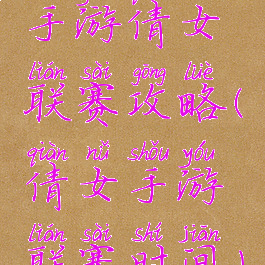 手游倩女
lián sài gōng lüè
联赛攻略(
qiàn nǚ shǒu yóu
倩女手游
lián sài shí jiān
联赛时间)